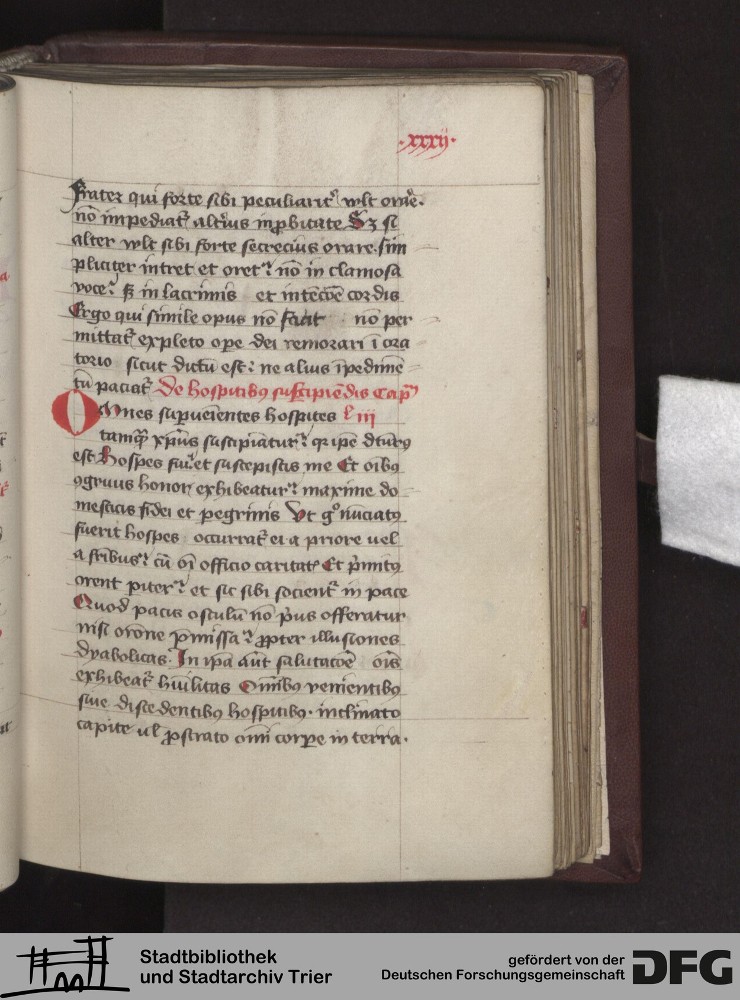 ·xxxij·
Frater qui forte sibi peculiarit᷑ wlt orar̄e.
nō impediat᷑ alt̾ius inp̱bitate Sꝫ si
alter wlt sibi forte secrecius orare. sim
pliciter intret et oret᷑ nō in clamosa
voce᷑ sꝫ in lacrimis et intēcōe cordis
Ergo qui simile opus nō facit nō per
mittat᷑ expleto ope dei remorari ī ora
torio sicut dictū est᷑ ne alius īpedimē
tū paciat᷑ De hospitibꝫ suscipiēdis Cap̄
Omnes supueīentes hospites liii
tamqꝫ xp̄us suscipiātur᷑ qꝛ ip̄e dturꝫ
est Hospes fui᷑ et suscepistis me Et oībꝫ
ꝯgruus honor exhibeatur᷑ maxime do
mesticis fidei et pegrinis Vt gͦ nūciatꝫ
fuerit hospes occurrat᷑ ei a priore uel
a fr̄ibus᷑ cū oī officio caritat᷑ Et p̄mitꝫ
orent pariter᷑ et sic sibi socient᷑ in pace
Quod pacis osculū nō p̄us offeratur
nisi or̄one p̄missa᷑ ꝓpter illusiones
dyabolicas. In ip̄a aūt salutacōe oīs
exhibeat᷑ hūilitas Omībꝫ venientibꝫ
siue discedentibꝫ hospitibꝫ. inclinato
capite ul̄ ꝓstrato omī corpe in terra.
Stadtbibliothek
und Stadtarchiv Trier
gefördert von der
Deutschen Forschungsgemeinschaft
DFG